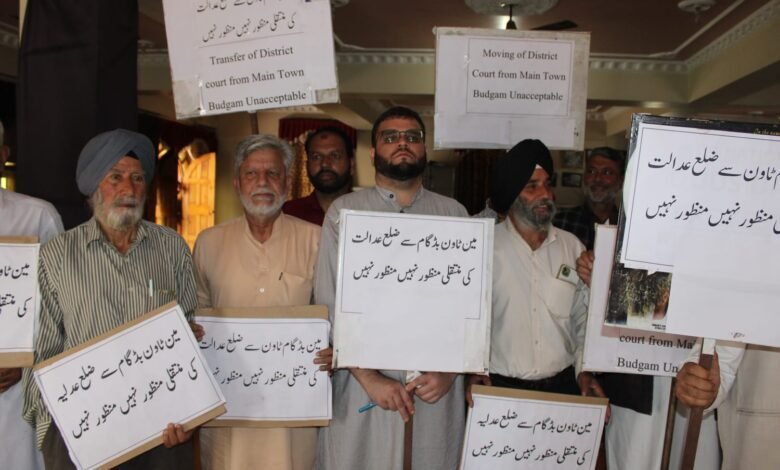 نہیں ضلع عدالت
کی منتقلی منظور نہیں منظور نہیں
Transfer of District
court from Main Town
Budgam Unacceptable
Moving of District
Court from Main Town
Budgam Unacceptable
مین ٹاون سے ضلع عدالت
منظور نہیں منظور نہیں
مین ٹاون بڈگام سے ضلع عدالت
کی منتقلی نہیں منظور نہیں منظور نہیں
مین ٹاون
کی منتقلی
مین ٹاون بڈگام سے ضلع عدلیہ
کی منتقلی نہیں منظور نہیں منظور نہیں
مین ٹاون بڈگام سے ضلع عدالت
کی منتقلی نہیں منظور نہیں منظور نہیں
مین ٹاون بڈگام سے ضلع عدالت
کی منتقلی نہیں منظور نہیں منظور نہیں
court from Main
Budgam Unacceptable